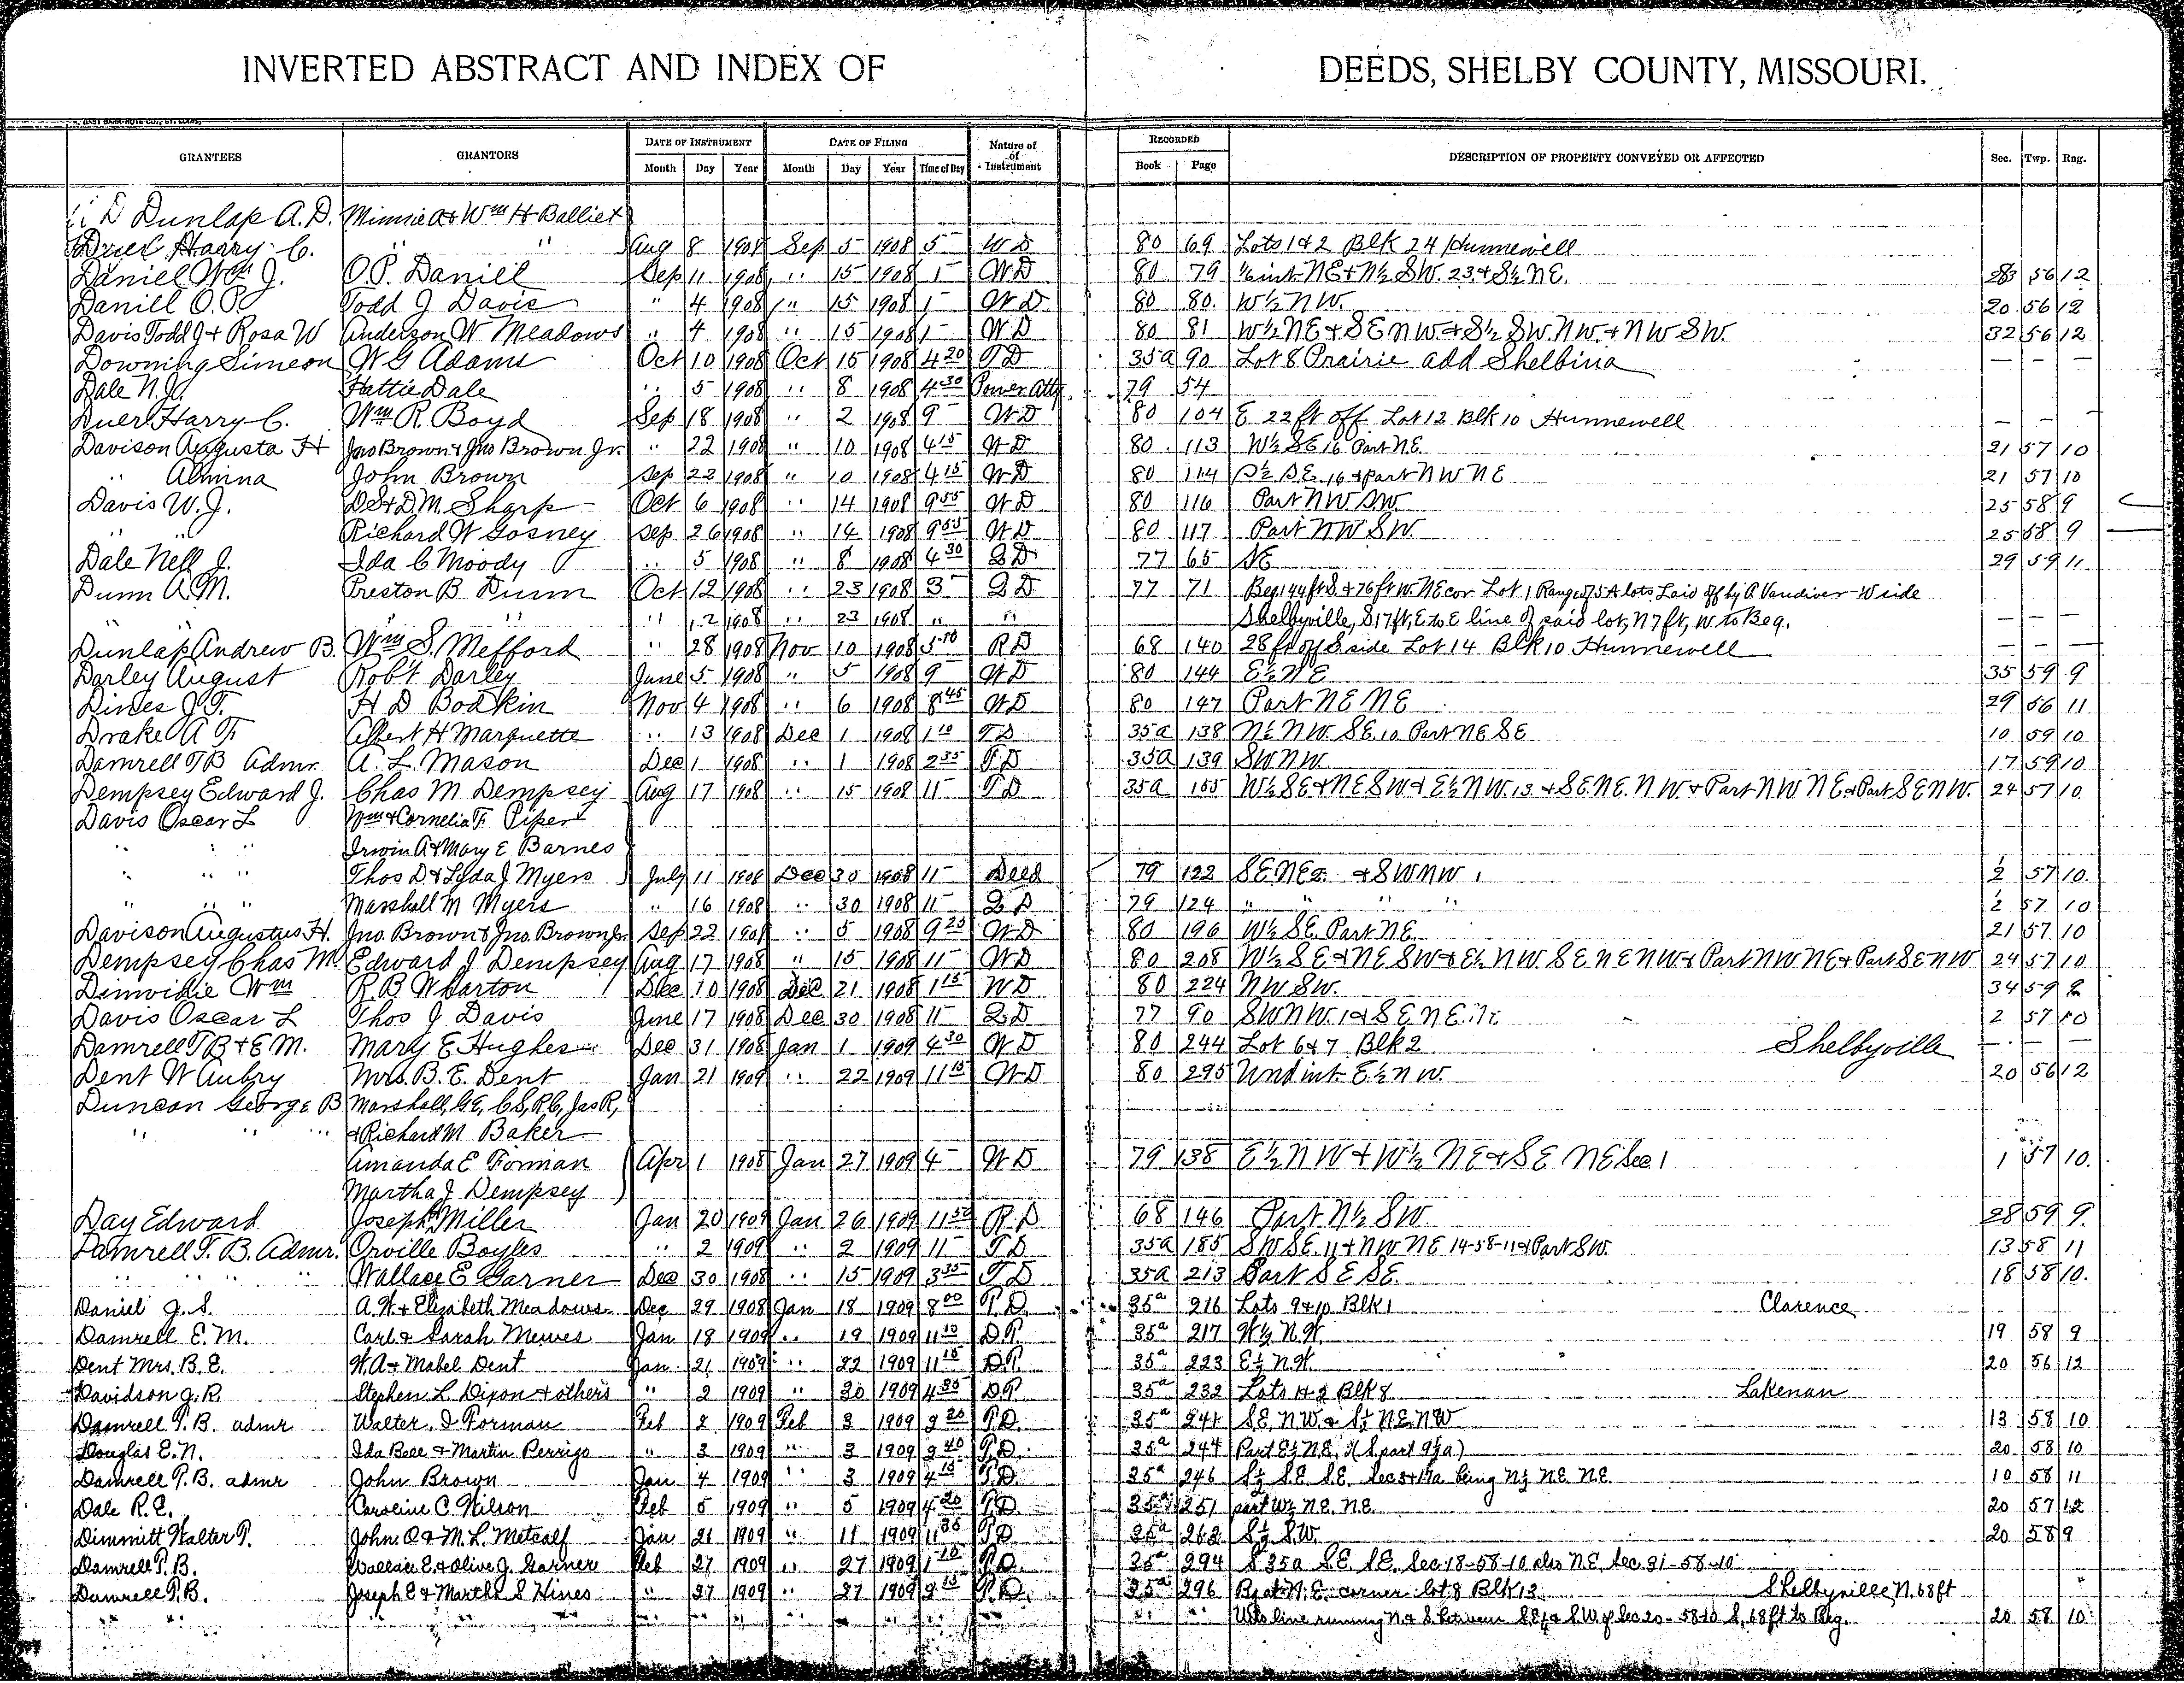 INVERTED ABSTRACT AND INDEX OF DEEDS, SHELBY COUNTY, MISSOURI.
GRANTEES GRANTORS DATE OF INSTRUMENT DATE OF FILING Nature of of Instrument RECORDED DESCRIPTION OF PROPERTY CONVEYED OR AFFECTED Sec. Twp. Rng.
Month Day Year Month Day Year Time of Day Book Page
Dunlap A.D. Minnie A & Wm H Balliet
Duer Harry C. " " Aug 8 1908 Sep 5 1908 5 WD 80 69 Lots 1 & 2 Blk 24 Hunnewell
Daniel Wm J. O.P. Daniel Sep 11 1908 " 15 1908 1 WD 80 79 1/6 int NE & N½ SW. 23 & S½ NE. 56 12
Daniel O.P. Todd J Davis " 4 1908 " 15 1908 1 WD 80 80 W½ NW. 20 56 12
Davis Todd J & Rosa W Anderson W Meadows " 4 1908 " 15 1908 1 WD 80 81 W½ NE & SE NW & S½ SW. NW. & NW SW. 32 56 12
Downing Simeon W G Adams Oct 10 1908 Oct 15 1908 4 20 TD 35a 90 Lot 8 Prairie add Shelbina — — —
Dale N.J. Hattie Dale " 5 1908 " 8 1908 4 30 Power Atty 79 54
Duer Harry C. Wm R. Boyd Sep 18 1908 " 2 1908 9 WD 80 104 E 22 ft off Lot 12 Blk 10 Hunnewell — — —
Davison Augusta H Jno Brown & Jno Brown Jr. " 22 1908 " 10 1908 4 15 WD 80 113 W½ SE 16 Part NE. 21 57 10
" Almina John Brown Sep 22 1908 " 10 1908 4 15 WD 80 114 S½ SE. 16 & part NW NE 21 57 10
Davis W.J. D.S & D.M. Sharp Oct 6 1908 " 14 1908 9 55 WD 80 116 Part NW SW. 25 58 9
" " Richard W Gosney Sep 26 1908 " 14 1908 9 55 WD 80 117 Part NW SW. 25 58 9
Dale Nell J. Ida C Moody " 5 1908 " 8 1908 4 30 QD 77 65 NE 29 59 11
Dunn A.M. Preston B Dunn Oct 12 1908 " 23 1908 3 QD 77 71 Beg 144 ft S & 76 ft W. NE cor. Lot 1 Range 7 5 A lots Laid off by A Vandiver W side
" " " 12 1908 " 23 1908 " " Shelbyville, S 17 ft, E to E line of said lot, N 7 ft, W to Beg. — — —
Dunlap Andrew B. Wm S. Mefford " 28 1908 Nov 10 1908 5 10 RD 68 140 28 ft off S side Lot 14 Blk 10 Hunnewell — — —
Darley August Rob't Darley June 5 1908 " 5 1908 9 WD 80 144 E½ NE 35 59 9
Dines J.T. H D Bodkin Nov 4 1908 " 6 1908 8 45 WD 80 147 Part NE NE 29 56 11
Drake A F Albert H Marquette " 13 1908 Dec 1 1908 1 10 TD 35a 138 N½ NW. SE. 10 Part NE SE 10 59 10
Damrell T B Admr. A. L. Mason Dec 1 1908 " 1 1908 2 35 TD 35a 139 SW NW 17 59 10
Dempsey Edward J. Chas M Dempsey Aug 17 1908 " 15 1908 11 TD 35a 165 W½ SE & NE SW & E½ NW. 13 & SE NE. NW. & Part NW NE & Part SE NW. 24 57 10
Davis Oscar L Wm & Cornelia F. Piper
" " " Irwin A & Mary E Barnes
" " " Thos D & Lyda J Myers July 11 1908 Dec 30 1908 11 Deed 79 122 SE NE 2 & SW NW 1 ½ 57 10
" " " Marshall M Myers " 16 1908 " 30 1908 11 QD 79 124 " " " " ½ 57 10
Davison Augustus H. Jno. Brown & Jno. Brown Jr. Sep 22 1908 " 5 1908 9 25 WD 80 196 W½ SE. Part NE 21 57 10
Dempsey Chas M. Edward J Dempsey Aug 17 1908 " 15 1908 11 WD 80 208 W½ SE & NE SW & E½ NW. SE NE NW & Part NW NE & Part SE NW 24 57 10
Dinwidie Wm R. B Wharton Dec 10 1908 Dec 21 1908 1 15 WD 80 224 NW SW. 34 59
Davis Oscar L Thos J Davis June 17 1908 Dec 30 1908 11 QD 77 90 SW NW. 1 & SE NE. 2 57 10
Damrell T B & E M. Mary E Hughes Dec 31 1908 Jan 1 1909 4 30 WD 80 244 Lot 6 & 7 Blk 2 Shelbyville — — —
Dent W Aubry Mrs. B. E. Dent Jan 21 1909 " 22 1909 11 15 WD 80 295 Und int E½ NW. 20 56 12
Duncan George B Marshall, G.E, C.S, R.C, Jas R,
" " " & Richard M Baker
Amanda E Forman Apr 1 1908 Jan 27 1909 4 WD 79 138 E½ NW & W½ NE & SE NE Sec 1 1 57 10
Martha J Dempsey
Day Edward Joseph Miller Jan 20 1909 Jan 26 1909 11 50 RD 68 146 Part N½ SW 28 59 9
Damrell T. B. Admr. Orville Boyles " 2 1909 " 2 1909 11 TD 35a 185 SW SE. 11 & NW NE 14-58-11 & Part SW. 13 58 11
" " " Wallace E Garner Dec 30 1908 " 15 1909 3 35 TD 35a 213 Part SE SE. 18 58 10
Daniel J. S. A. W. & Elizabeth Meadows Dec 29 1908 Jan 18 1909 8 00 T.D. 35a 216 Lots 9 & 10 Blk 1 Clarence
Damrell E. M. Carl & Sarah Mewes Jan 18 1909 " 19 1909 11 10 D.T. 35a 217 W½ N.W. 19 58 9
Dent Mrs. B. E. W. A & Mabel Dent Jan 21 1909 " 22 1909 11 15 D.T. 35a 223 E½ N.W. 20 56 12
Davidson J. R. Stephen L Dixon & others " 2 1909 " 30 1909 4 35 DT 35a 232 Lots 1 & 2 Blk 8 Lakenan
Damrell T. B. admr Walter. D Forman Feb 2 1909 Feb 3 1909 2 20 T.D. 35a 241 S.E. N.W. & S½ N.E. N.W 13 58 10
Douglas E. N. Ida Bell & Martin Perrigo " 3 1909 " 3 1909 2 40 T.D. 35a 244 Part E½ N.E. (S part 9½ a) 20 58 10
Damrell T. B. admr John Brown Jan 4 1909 " 3 1909 4 15 T.D. 35a 246 S½ S.E. S.E. Sec 3 & 19a being N½ N.E. N.E. 10 58 11
Dale R. E. Caroline C. Wilson Feb 5 1909 " 5 1909 4 20 T.D. 35a 251 part W½ N.E. N.E. 20 57 12
Dimmitt Walter P. John. Q & M. L. Metcalf Jan 21 1909 " 11 1909 11 35 T.D. 35a 262 S½ S.W. 20 58 9
Damrell T. B. Wallace E. & Olive J. Garner Feb 27 1909 " 27 1909 1 10 T.D. 35a 294 S 35a S.E. S.E. Sec 18-58-10 also N.E. Sec. 31-58-10
Damrell T. B. Joseph E & Martha S Hines " 27 1909 " 27 1909 2 15 T.D. 35a 296 Bg at N.E. corner lot 8 Blk 13 Shelbyville N. 68 ft
" " " W to line running N & S between S.E¼ & S.W. of Sec 20-58-10 S. 68 ft to Beg. 20 58 10